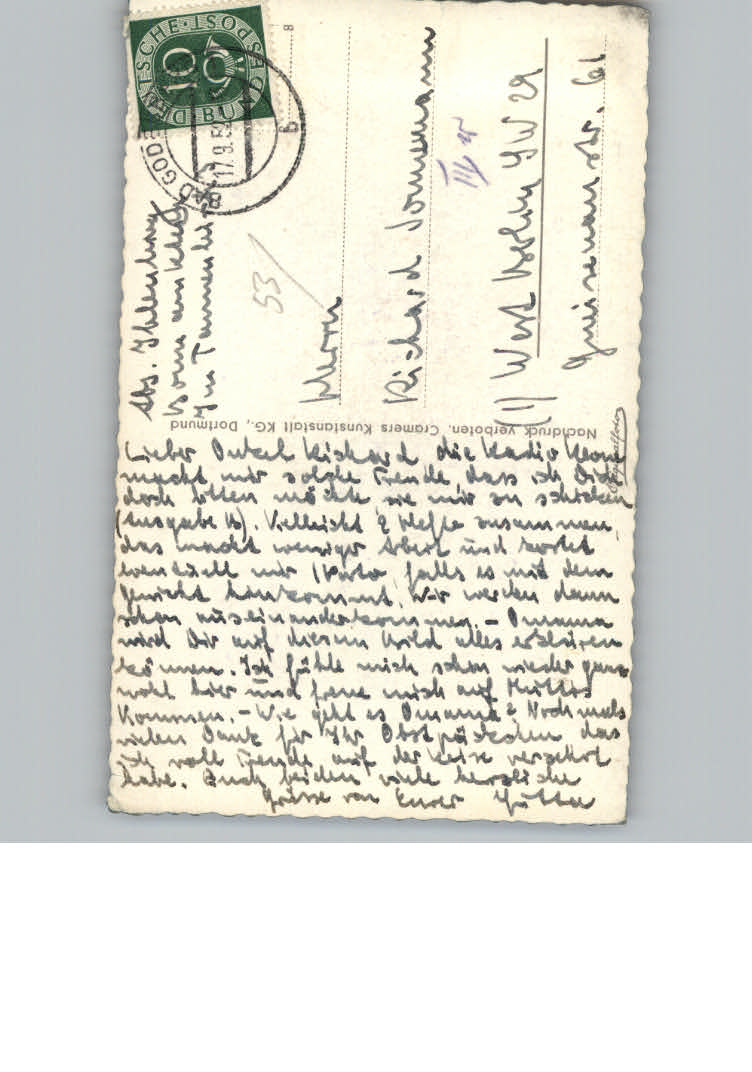 DEUTSCHE BUNDESPOST
10
BAD GODE
17.9.52
8
b
Abs. Ihlenburg
Bonn am Rhein
Im Tannenbusch
53/
Herrn
Richard
III
(1) West Berlin SW 29
Gneisenaustr. 61
Nachdruck verboten. Cramers Kunstanstalt KG., Dortmund
Lieber Onkel Richard die Radio Revue
macht mir solche Freude, dass ich Dich
doch bitten möchte sie mir zu schicken
(Ausgabe B). Vielleicht 2 Hefte zusammen,
das macht weniger Arbeit und kostet
eventuell nur 1 Porto, falls es mit dem
Gewicht hinkommt. Wir werden dann
schon auseinanderkommen. - Omama
wird Dir auf diesem Bild alles erklären
können. Ich fühle mich schon wieder ganz
wohl hier und freue mich auf Muttis
Kommen. - Wie geht es Omama? Nochmals
vielen Dank für Ihr Obstpäckchen das
ich voll Freude auf der Reise verzehrt
habe. Euch beiden viele herzliche
Grüsse von Eurer